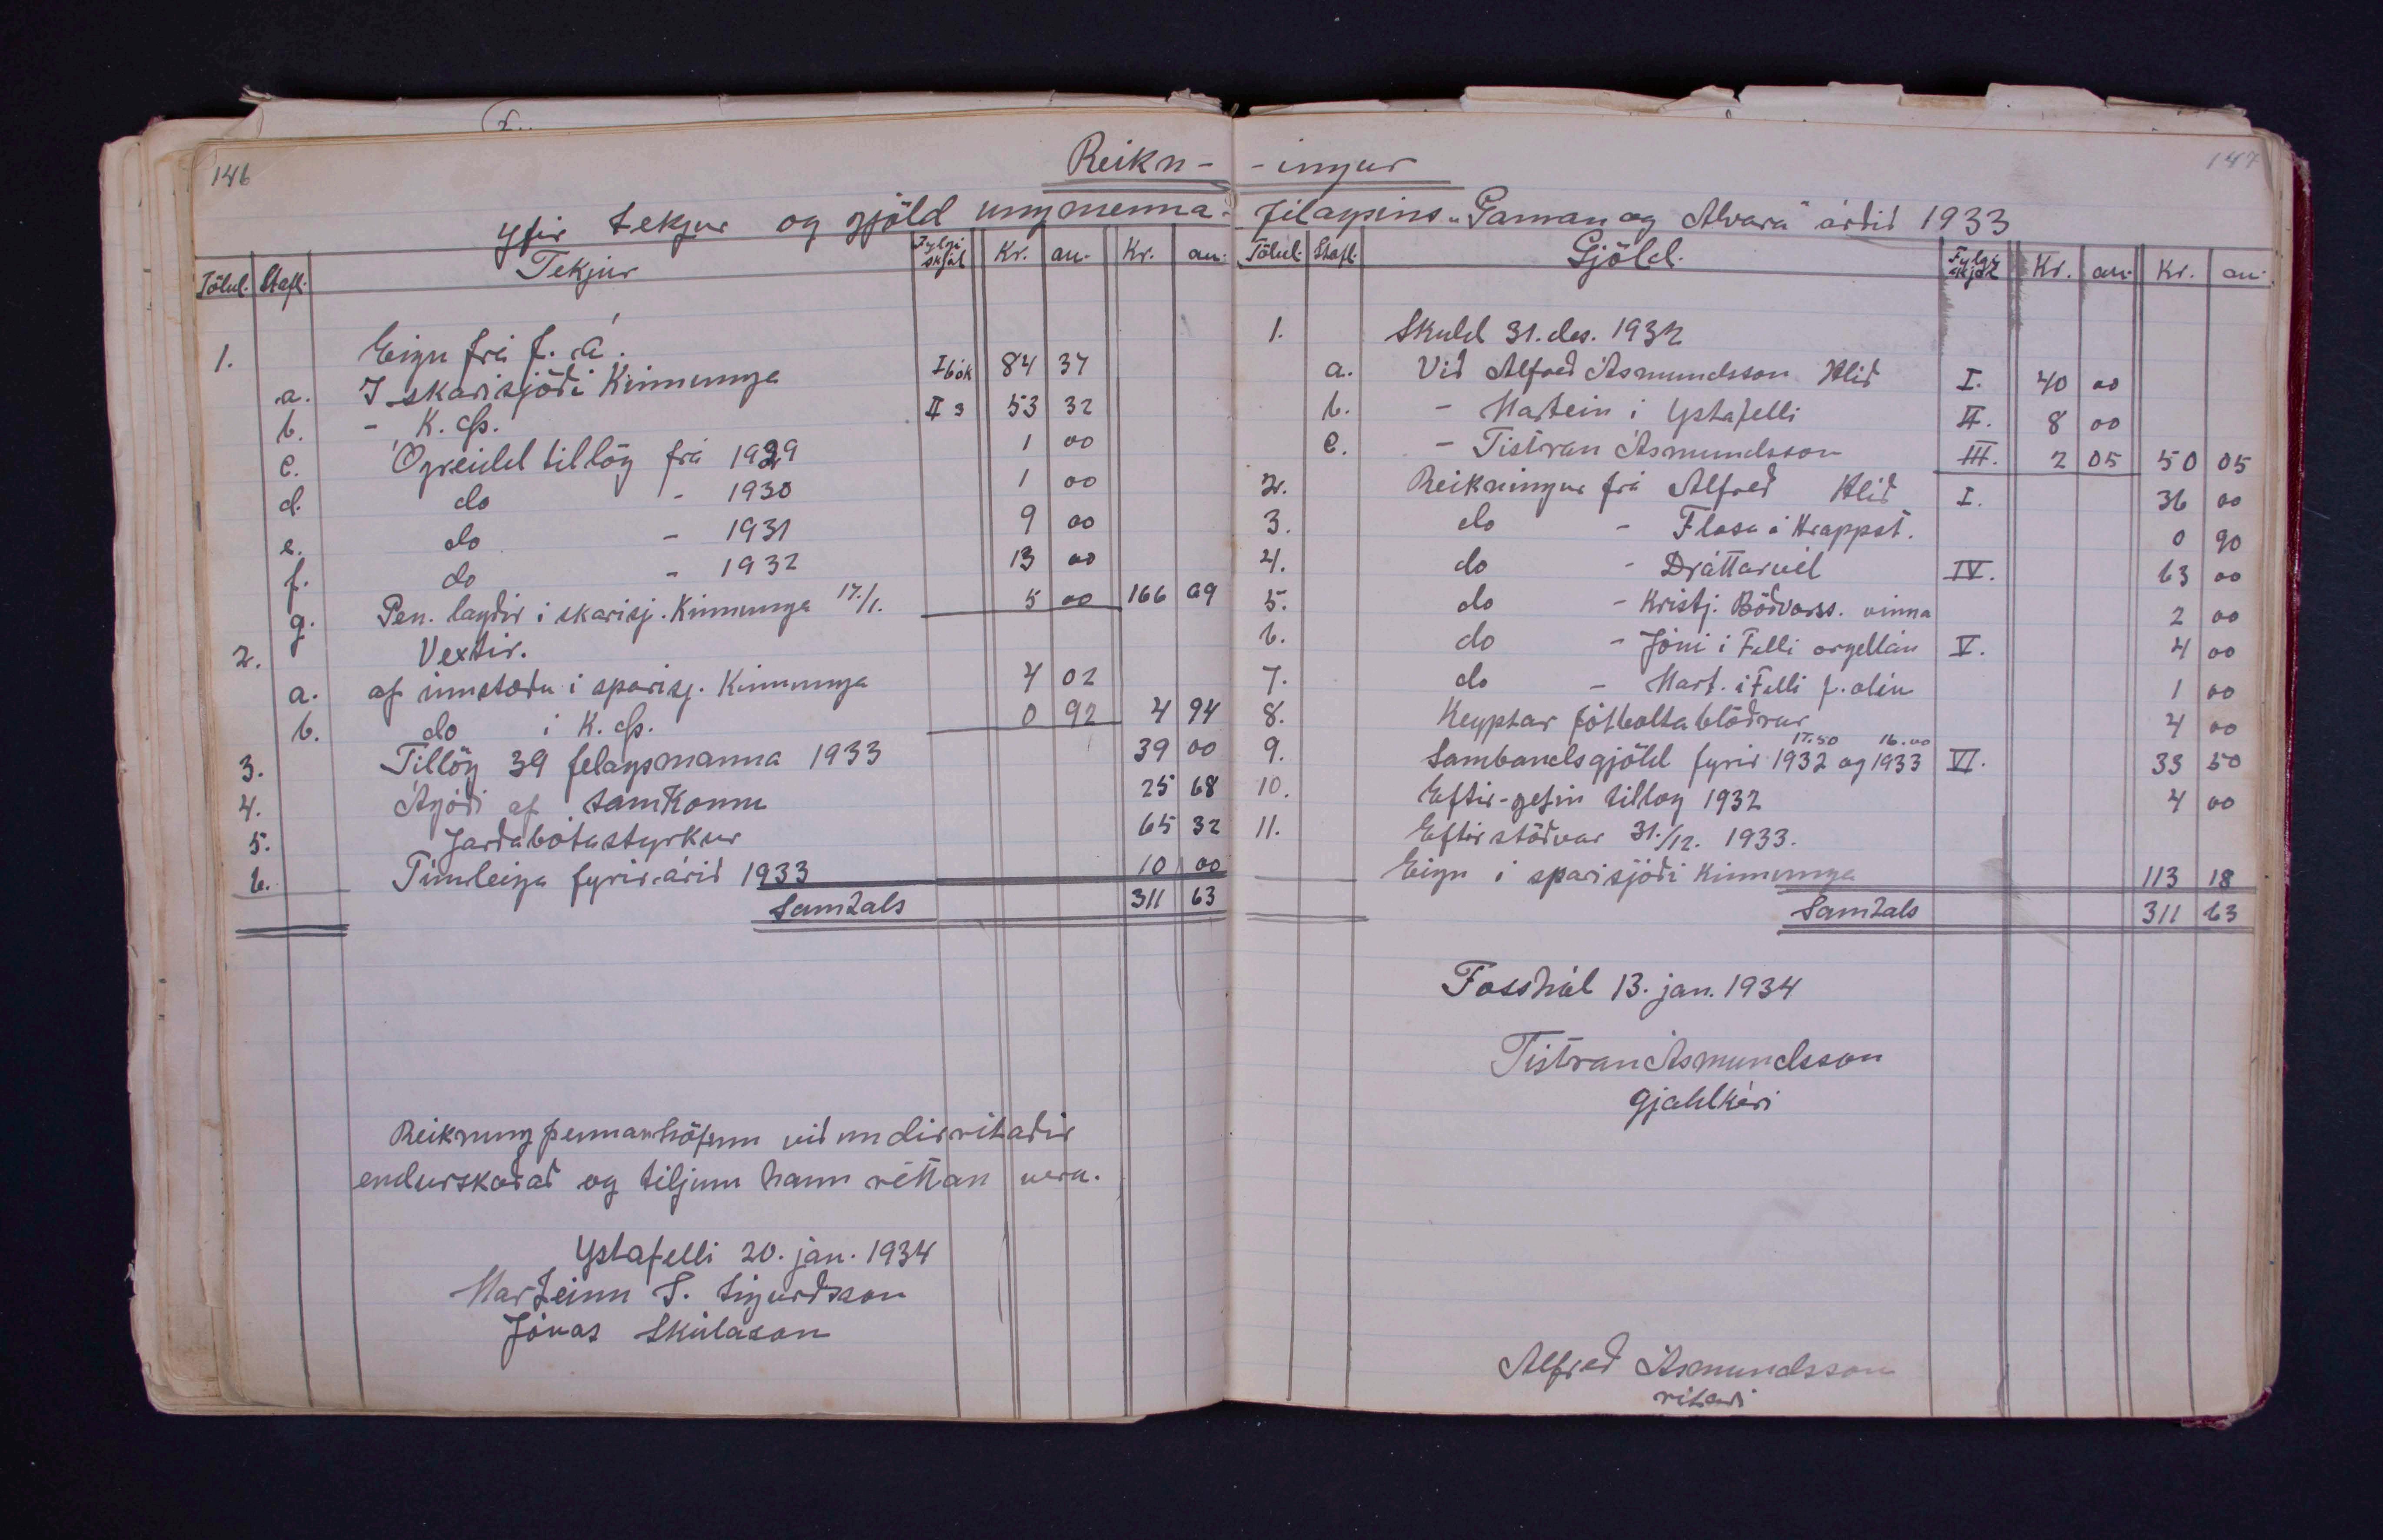 146
147
Reikn- -ingur
yfir tekjur og gjöld ungmenna- félagsins „Gaman og Alvara" árið 1933
Tölul. Stafl. Tekjur Fylgi skjöl Kr. au. Kr. au.
1. Eign frá f. á.
a. I skarisjóði Kinnunga I bók 84 37
b. - K. Þ. II 53 32
c. Ógreidd tillög frá 1929 1 00
d. do - 1930 1 00
e. do - 1931 9 00
f. do - 1932 13 00
g. Pen. lagðir í skarisj. Kinnunga 17./1. 5 00 166 69
2. Vextir.
a. af innstæðu í sparisj. Kinnunga 4 02
b. do í K. Þ. 0 92 4 94
3. Tillög 39 felagsmanna 1933 39 00
4. Ágóði af samkomu 25 68
5. Jarðabótastyrkur 65 32
6. Túnleiga fyrir árið 1933 10 00
Samtals 311 63
Reikning þennan höfum við undirritaðir
endurskoðað og teljum hann réttan vera.
Ystafelli 20. jan. 1934
Marteinn S. Sigurðsson
Jónas Skúlason
Tölul. Stafl. Gjöld. Fylgi skjöl Kr. au. Kr. au.
1. Skuld 31. des. 1932
a. Við Alfreð Ásmundsson Hlíð I. 40 00
b. - Martein í Ystafelli II. 8 00
c. - Tistran Ásmundsson III. 2 05 50 05
2. Reikningur frá Alfreð Hlíð I. 36 00
3. do - Flosa á Hrappst. 0 90
4. do - Dráttarvél IV. 63 00
5. do - Kristj. Böðvarss. vinna 2 00
6. do - Jóni í Felli orgellán V. 4 00
7. do - Mart. í Felli f. olíu 1 00
8. Keyptar fótboltablöðrur 4 00
9. Sambandsgjöld fyrir 1932 og 1933 VI. 33 50
17.50 16.00
10. Eftir-gefin tillög 1932 4 00
11. Eftirstöðvar 31./12. 1933.
Eign í sparisjóði Kinnunga 113 18
Samtals 311 63
Fosshól 13. jan. 1934
Tistran Ásmundsson
gjaldkeri
Alfreð Ásmundsson
ritari